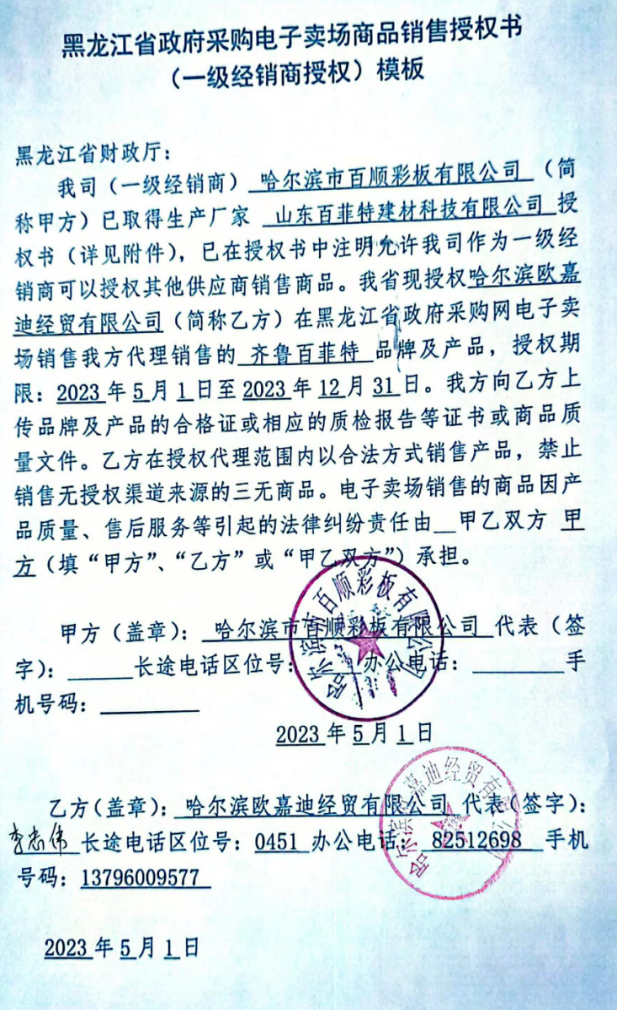 黑龙江省政府采购电子卖场商品销售授权书
（一级经销商授权）模板
黑龙江省财政厅：
我司（一级经销商） 哈尔滨市百顺彩板有限公司 （简
称甲方）已取得生产厂家 山东百菲特建材科技有限公司 授
权书（详见附件），已在授权书中注明允许我司作为一级经
销商可以授权其他供应商销售商品。我省现授权哈尔滨欧嘉
迪经贸有限公司（简称乙方）在黑龙江省政府采购网电子卖
场销售我方代理销售的 齐鲁百菲特 品牌及产品，授权期
限：2023 年 5 月 1 日至 2023 年 12 月 31 日。我方向乙方上
传品牌及产品的合格证或相应的质检报告等证书或商品质
量文件。乙方在授权代理范围内以合法方式销售产品，禁止
销售无授权渠道来源的三无商品。电子卖场销售的商品因产
品质量、售后服务等引起的法律纠纷责任由__甲乙双方 甲
方（填“甲方”、“乙方”或“甲乙双方”）承担。
甲方（盖章）： 哈尔滨市百顺彩板有限公司 代表（签
字）：______长途电话区位号：______办公电话：________手
机号码：_________
哈尔滨市百顺彩板有限公司
2023 年 5 月 1 日
乙方（盖章）： 哈尔滨欧嘉迪经贸有限公司 代表（签字）：
李志伟 长途电话区位号：0451 办公电话： 82512698 手机
号码：13796009577
哈尔滨欧嘉迪经贸有限公司
2023 年 5 月 1 日